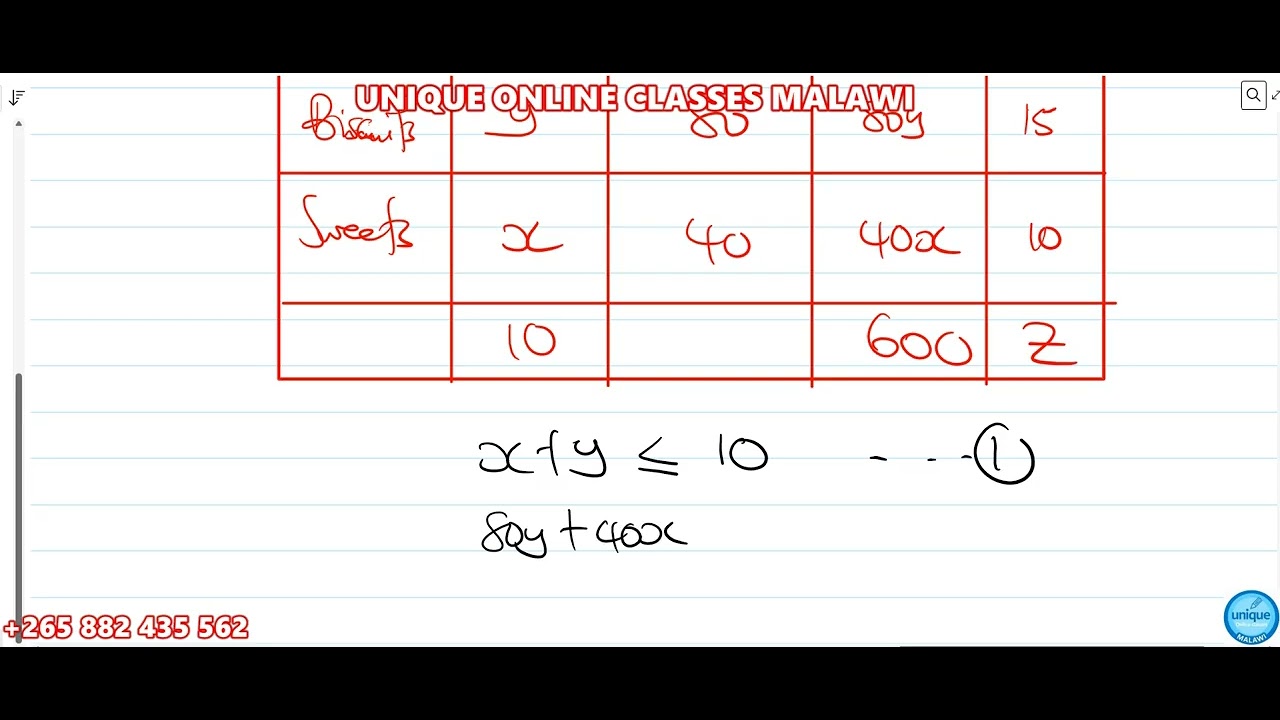 UNIQUE ONLINE CLASSES MALAWI
Biscuits y 80 80y 15
Sweets x 40 40x 10
10 600 Z
x+y ≤ 10 - - - ①
80y + 40x
+265 882 435 562
unique
MALAWI